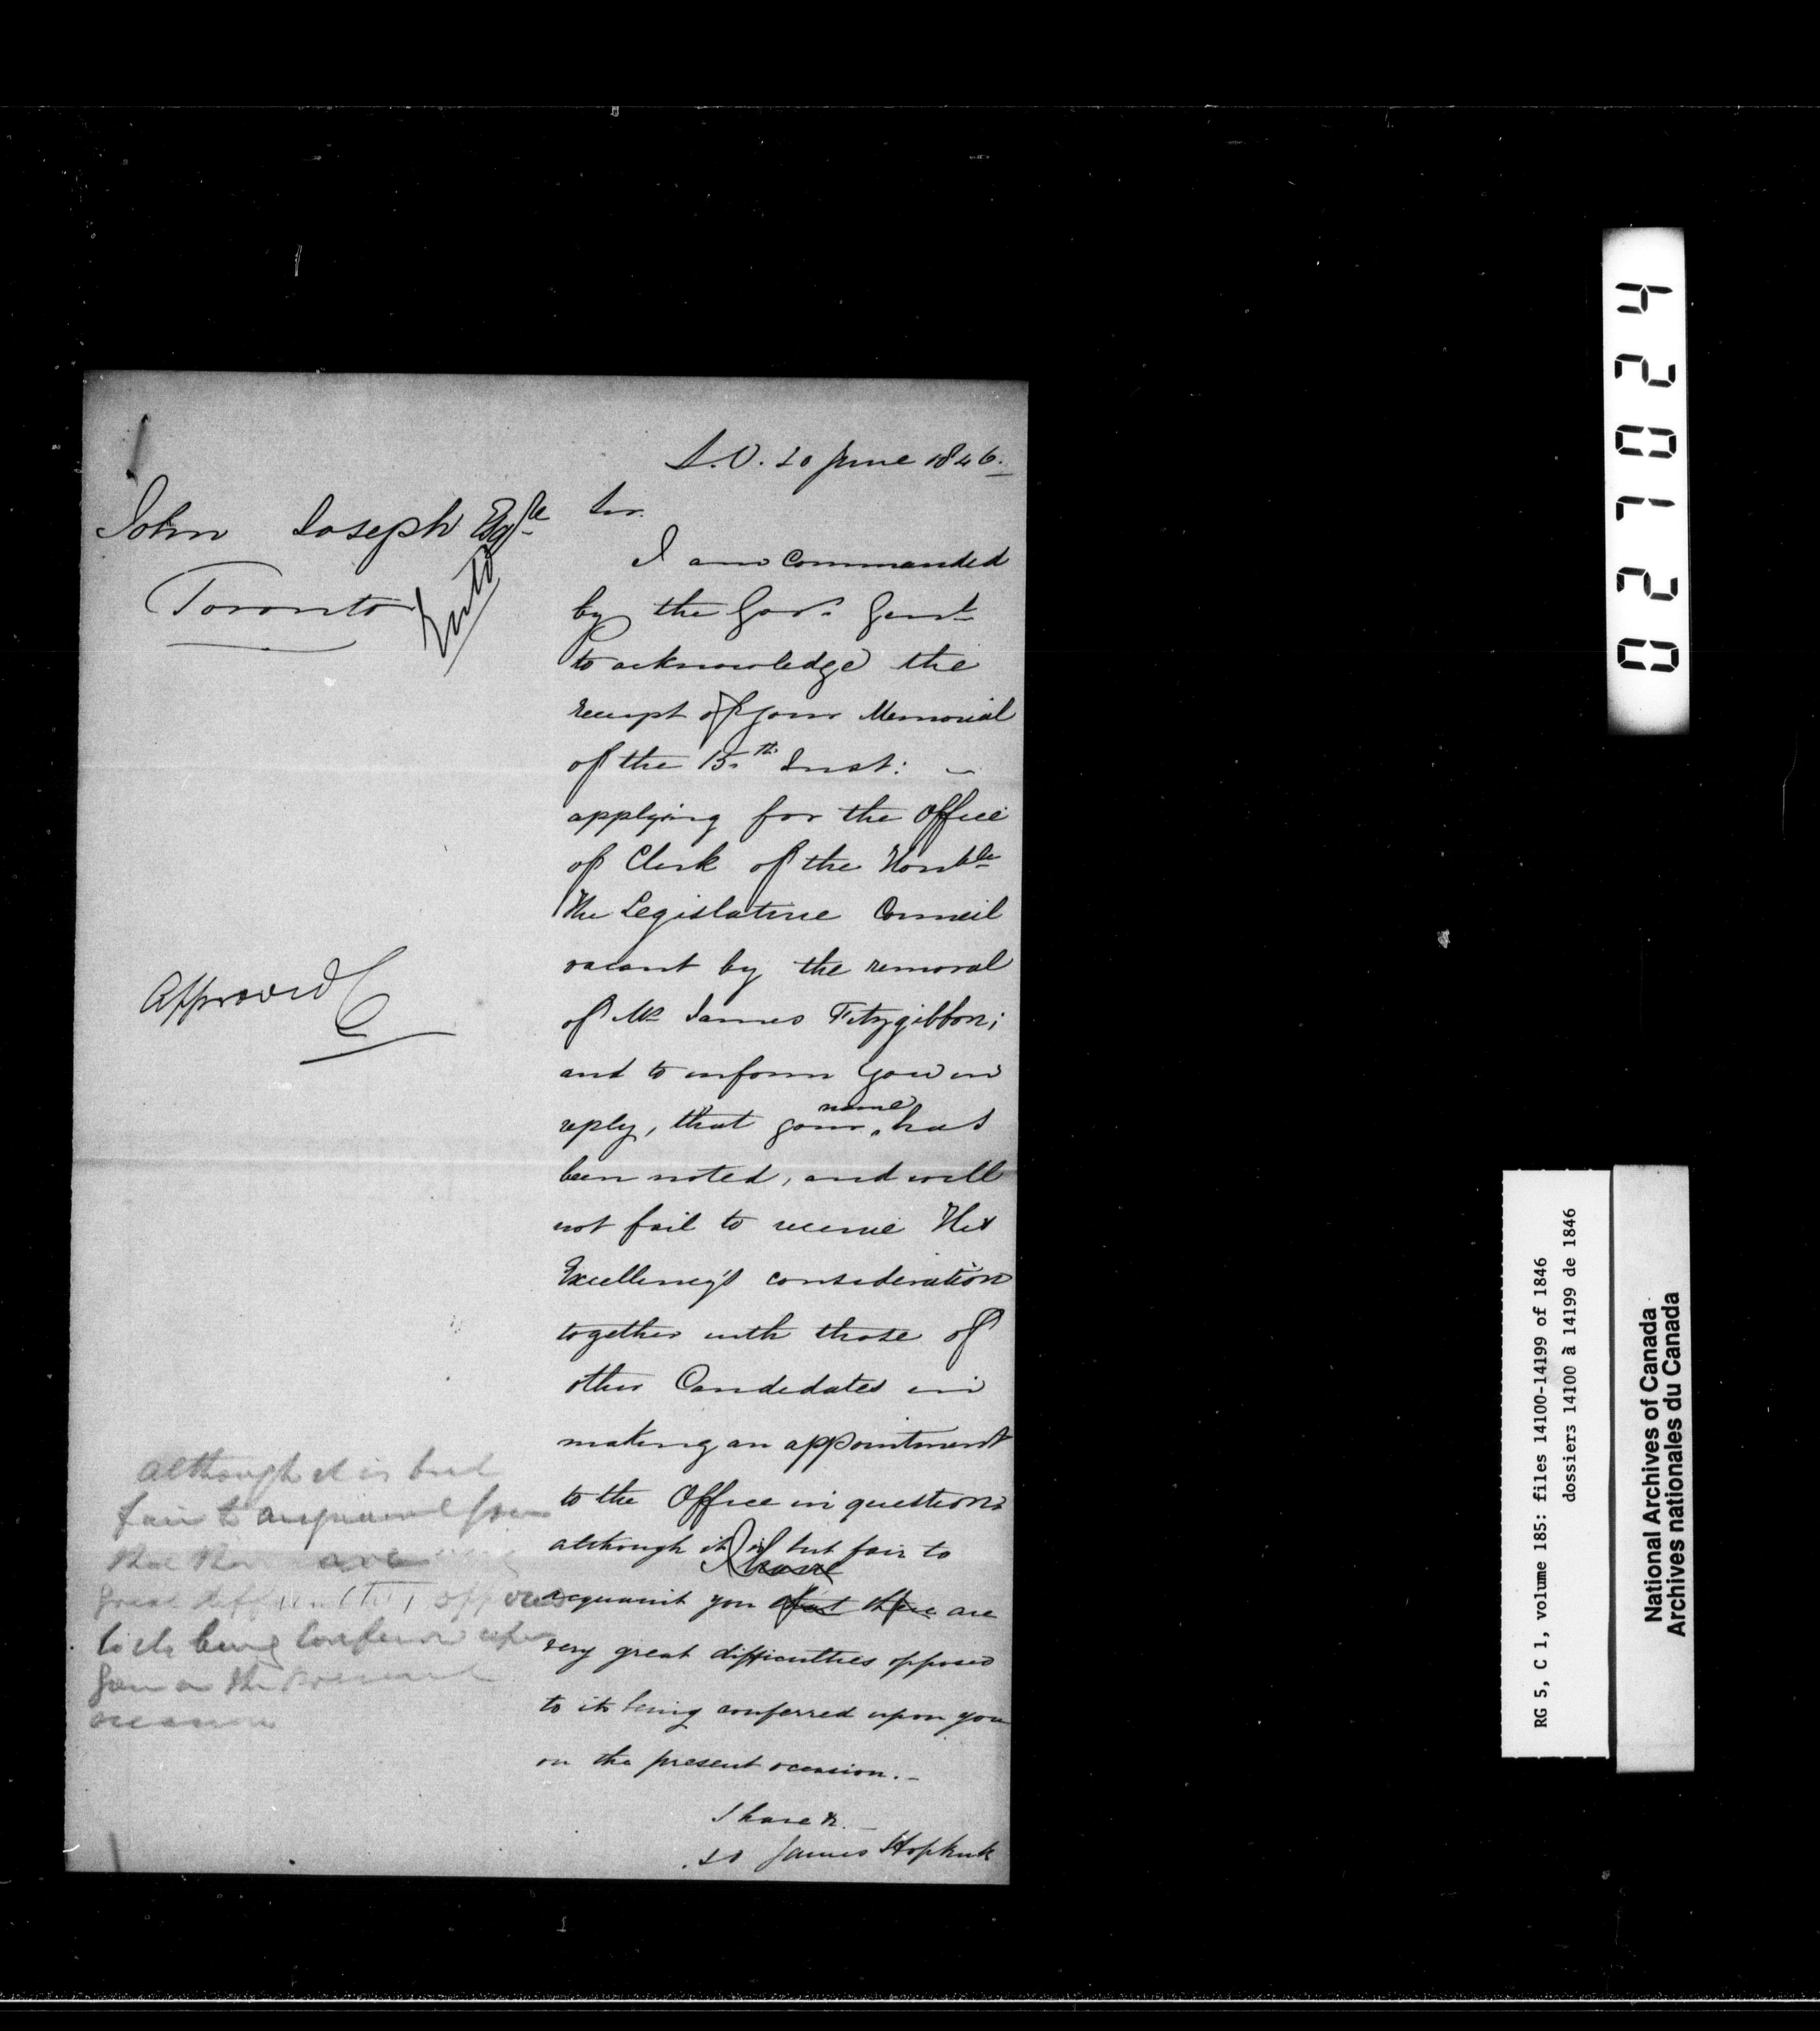 S.O. 20 June 1846.
John Joseph Esqre
Toronto
Sir.
I am Commanded
by the Govr. Genl.
to acknowledge the
receipt of your Memorial
of the 15th Inst: -
applying for the Office
of Clerk of the Honble
The Legislative Council
vacant by the removal
of Mr James Fitzgibbon;
and to inform you in
reply, that your name has
been noted, and will
not fail to receive His
Excellency's consideration
together with those of
other Candidates in
making an appointment
to the Office in question
although it is but fair to
I have
acquaint you that there are
very great difficulties opposed
to its being conferred upon you
on the present occasion. -
I have &.
James Hopkirk
Approved
although it is but
fair to acquaint you
that there are
great difficulties opposed
to its being conferred upon
you on the present
occasion
027024
RG 5, C 1, volume 185: files 14100-14199 of 1846
dossiers 14100 à 14199 de 1846
National Archives of Canada
Archives nationales du Canada